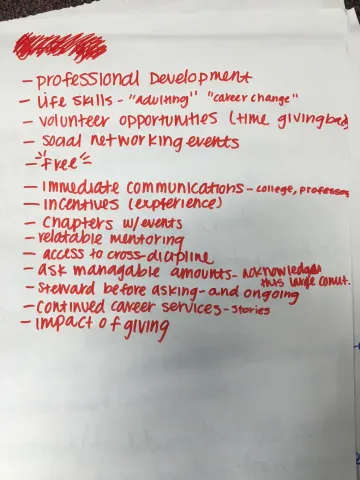 - professional development
- Life skills - "adulting" "career change"
- volunteer opportunities (time giving back)
- social networking events
- free
- immediate communications - college, professor
- incentives (experience)
- chapters w/events
- relatable mentoring
- access to cross-disipline
- ask managable amounts - acknowledges
this large comit.
- steward before asking - and ongoing
- continued career services - stories
- impact of giving